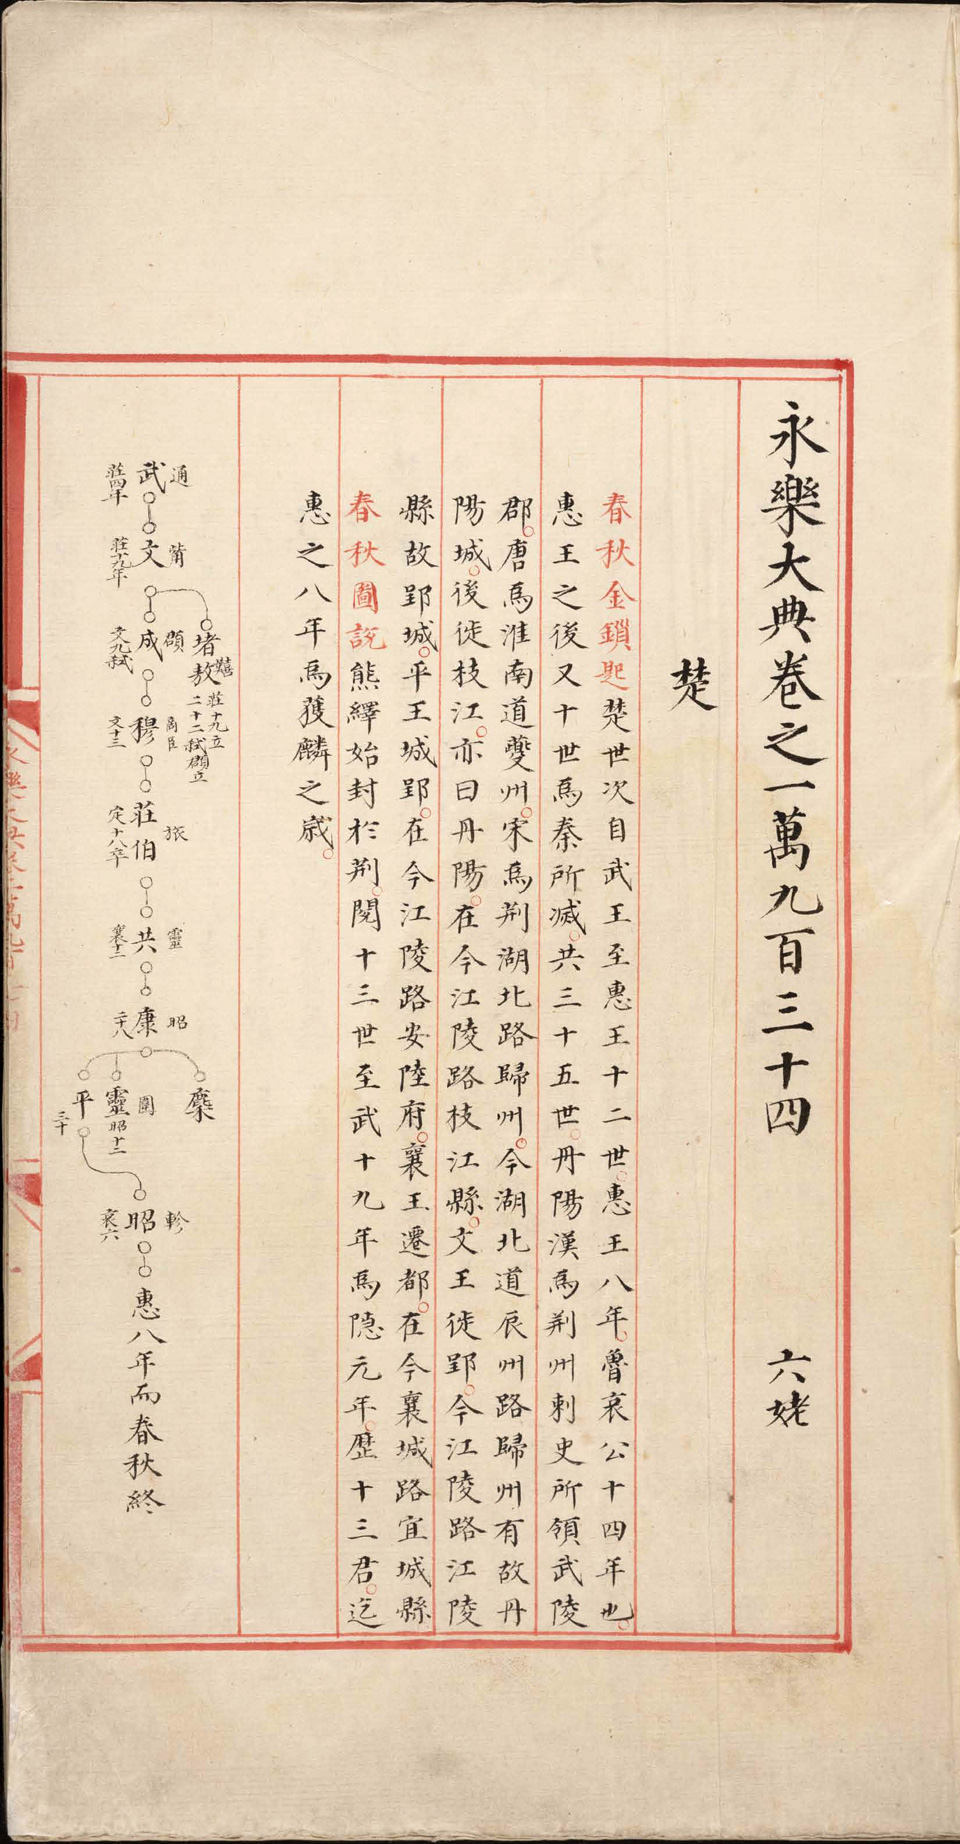 永樂大典卷之一萬九百三十四 六姥
楚
春秋金鎖匙楚世次自武王至惠王十二世惠王八年魯哀公十四年也
惠王之後又十世為秦所滅共三十五世丹陽漢為荆州刺史所領武陵
郡唐為淮南道夔州宋為荆湖北路歸州今湖北道辰州路歸州有故丹
陽城後徙枝江亦曰丹陽在今江陵路枝江縣文王徙郢今江陵路江陵
縣故郢城平王城郢在今江陵路安陸府襄王遷都在今襄城路宜城縣
春秋圖説熊繹始封於荆閱十三世至武十九年為隱元年歷十三君迄
惠之八年為獲麟之歲
通
武
莊四年
文
莊十九年
堵敖
莊十九立
二十二弑頵立
頵
成
文九弑
商臣
穆
文十三
旅
莊伯
定十八卒
靈
共
襄十三
昭
康
二十八
麇
圍
靈
昭十三
平
三十
軫
昭
哀六
惠八年而春秋終